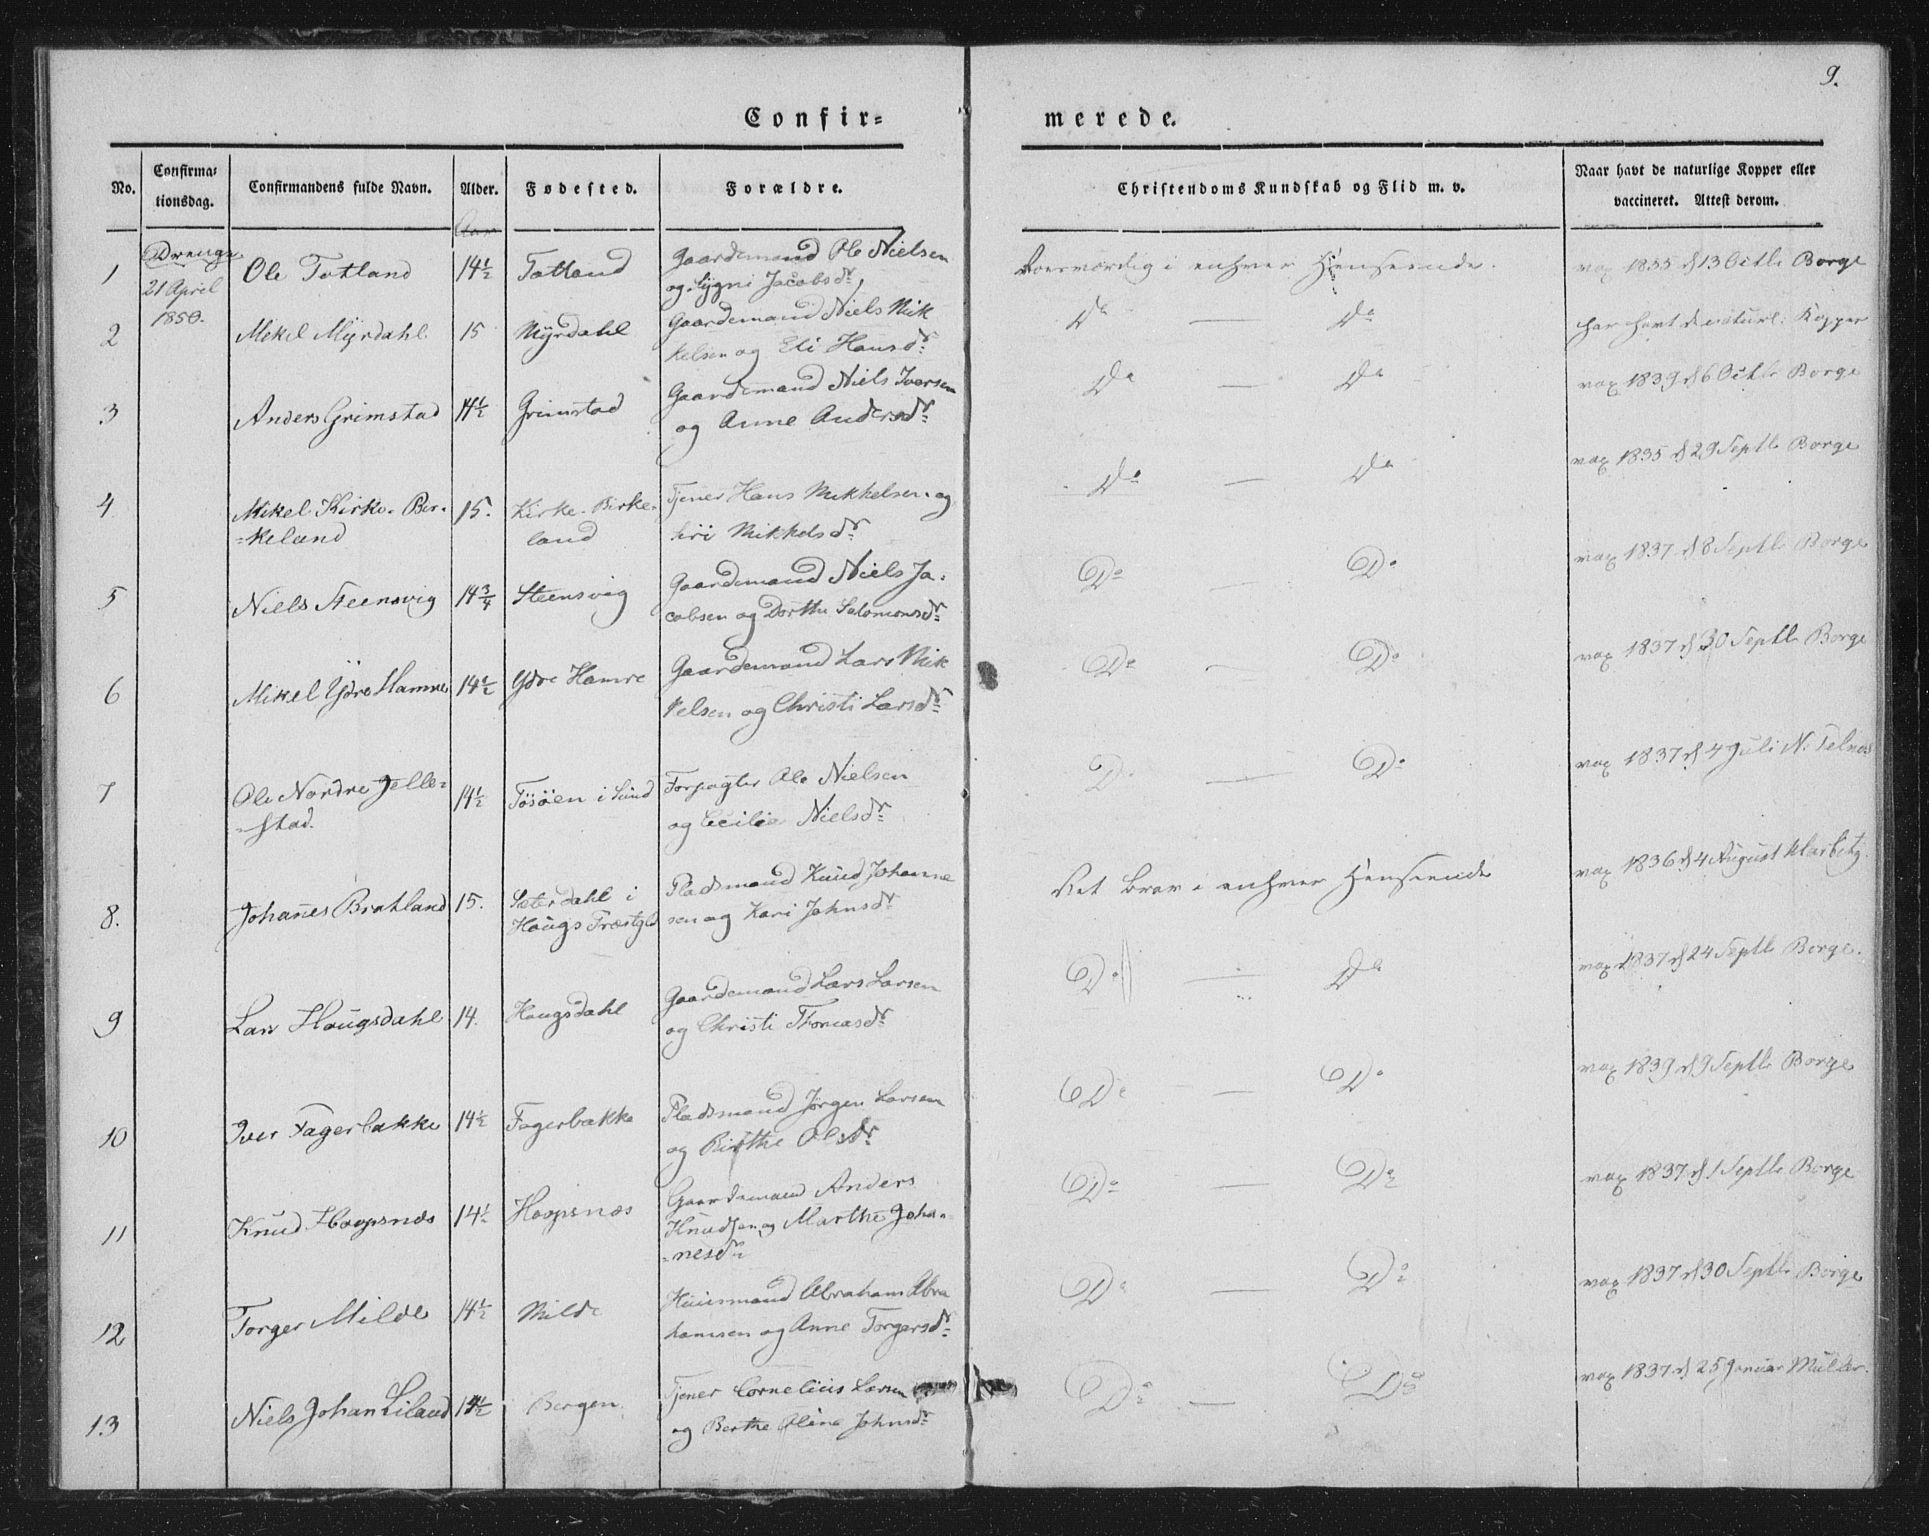 9.
Confir= merede.
No. Confirma=tionsdag. Confirmandens fulde Navn. Alder. Fødested. Forældre. Christendoms Kundskab og Flid m. v. Naar havt de naturlige Kopper eller vaccineret. Attest derom.
Aar
Drenge
21 April
1850.
1 Ole Totland 14½ Totland Gaardemand Ole Nielsen
og Sygni Jacobsdr. i enhver Henseende. vax 1835 d 13 Octbr Borge
2 Mikel Myrdahl 15 Myrdahl Gaardemand Niels Mik
kelsen og Eli Hansdr. Do — Do har havt de naturl: Kopper
3 Anders Grimstad 14½ Grimstad Gaardemand Niels Iversen
og Anne Andersdr. Do — Do vax 1839 d 6 Octbr Borge
4 Mikel Kirke-Bir-
=keland 15. Kirke-Birke-
land Tjener Hans Mikkelsen og
Mikkelsdr. Do — Do vax 1835 d 29 Septbr Borge
5 Niels Steensvig 14¾ Steensvig Gaardemand Niels Ja-
cobsen og Dorthe Salomonsdr. Do — Do vax 1837 d 8 Septbr Borge
6 Mikel Ydre Hamre 14½ Ydre Hamre Gaardemand Lars Mik
kelsen og Christi Larsdr. Do — Do vax 1837 d 30 Septbr Borge
7 Ole Nordre Jelle=
=stad. 14½ Tösöen i Sund Forpagter Ole Nielsen
og Cecilie Nielsdr. Do — Do vax 1837 d 4 Juli N. Telnæs
8. Johañes Bratland 15. Sæterdahl i
Haugs Præstgld Pladsmand Knud Johanne
sen og Kari Johnsdr. Ret brav i enhver Henseende vax 1836 d 4 August
9 Lars Haugsdahl 14. Haugsdahl Gaardemand Lars Larsen
og Christi Thomasdr. Do — Do vax 1837 d 24 Septbr Borge.
10 Iver Fagerbakke 14½ Fagerbakke Pladsmand Jörgen Larsen
og Birthe Olsdr. Do — Do vax 1839 d 9 Septbr Borge
11 Knud Hoopsnæs 14½ Hoopsnæs Gaardemand Anders
Knudsen og Marthe Joha-
-nesdr. Do — Do vax 1837 d 1 Septbr Borge
12 Torger Milde 14½ Milde Huusmand Abraham Abra
hamsen og Anne Torgersdr. Do — Do vax 1837 d 30 Septbr Borge
13 Niels Johan Liland 14½ Bergen. Tjener Cornelius Larsen
og Berthe Oline Johnsdr. Do — Do vax 1837 d 25 Januar Müller.